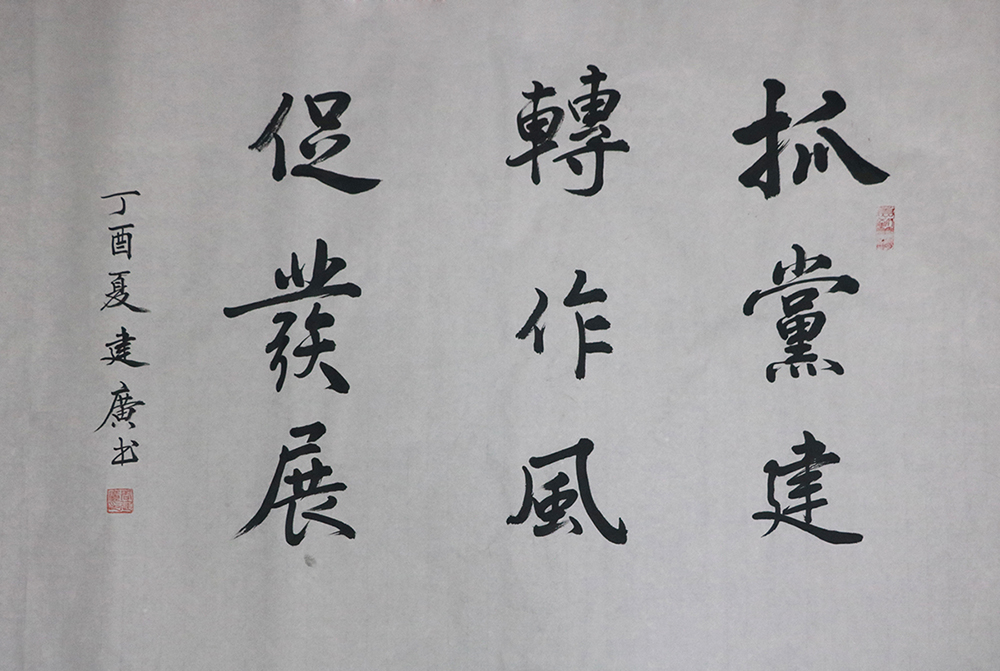 抓黨建
轉作風
促發展
丁酉夏建廣书